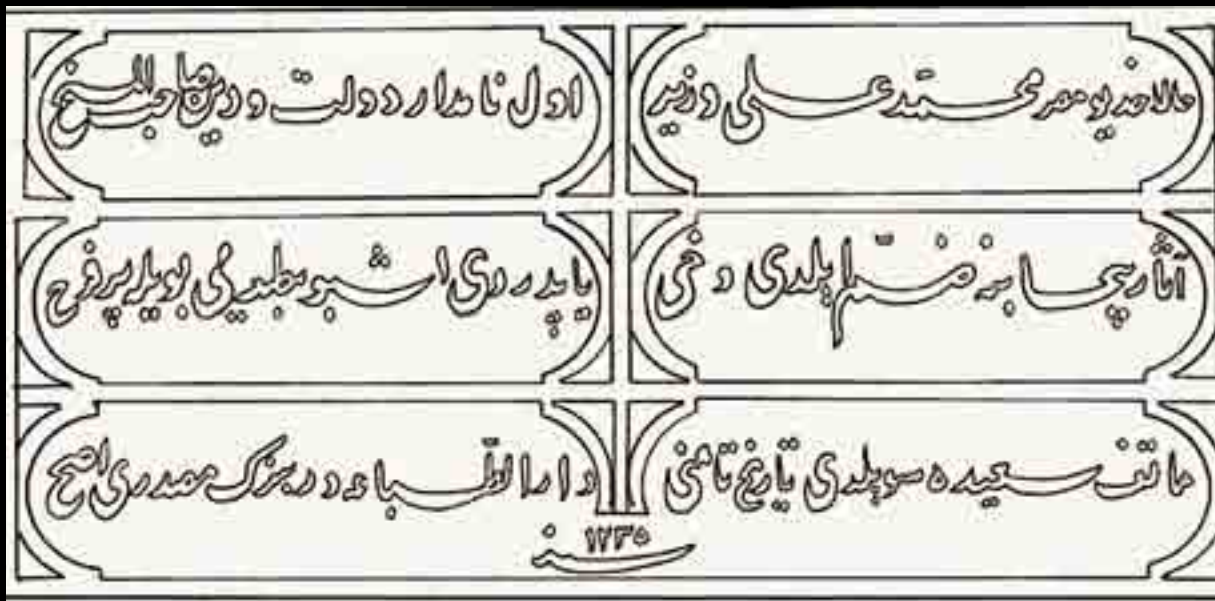 حالا خديو مصر محمّد علي وزير
اول نامدار دولت ودين صاحب المنح
آثار بيحسابنه ضمّ ايلدى دخى
ياپدردى اشبو مطبعه يى بويله پر فرح
هاتف سعيده سويلدى تاريخ تامنى
دار الطّباعه در هنرك مصدرى اصح
سنة ١٢٣٥